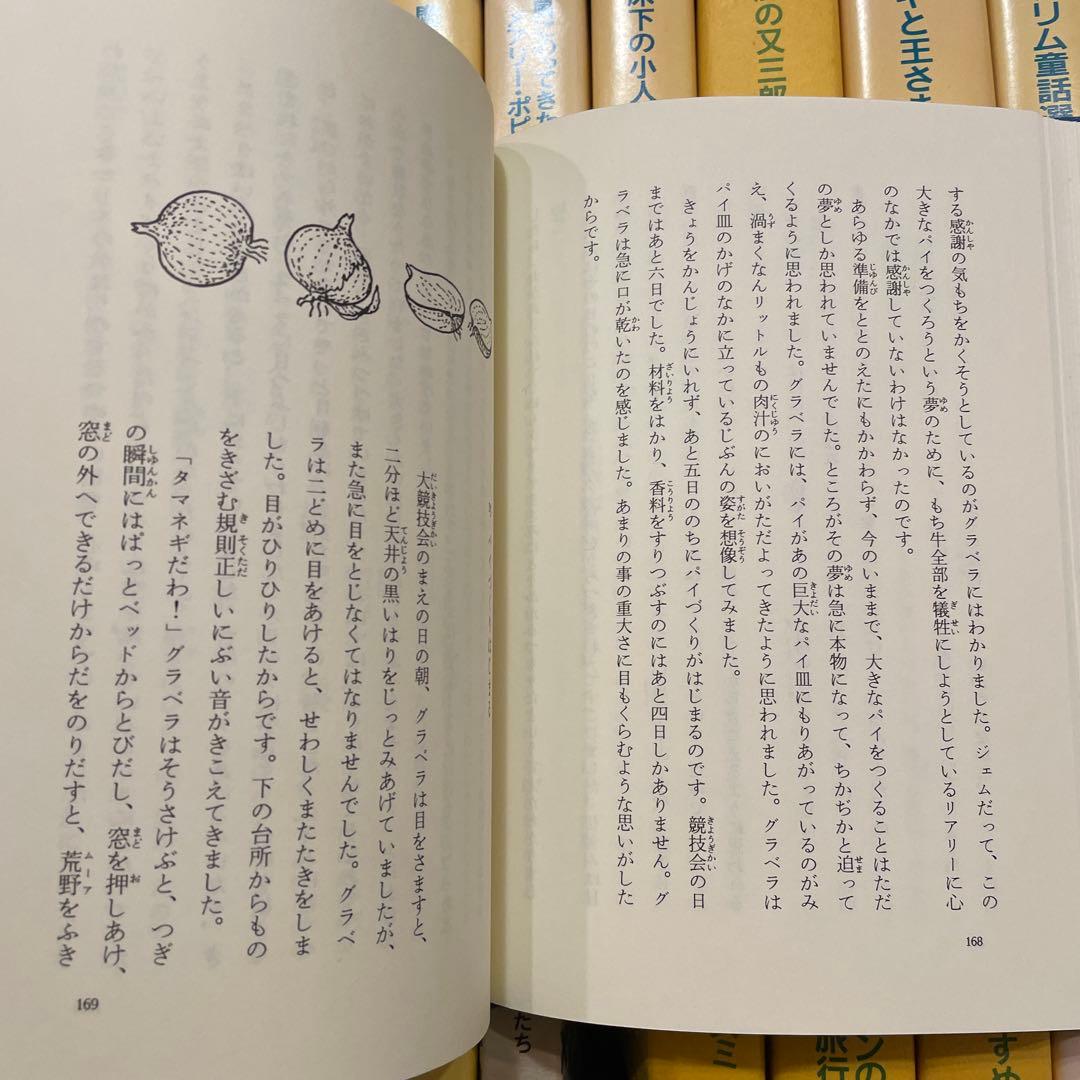 する感謝の気もちをかくそうとしているのがグラベラにはわかりました。ジェムだって、この
大きなパイをつくろうという夢のために、もち牛全部を犠牲にしようとしているリアリーに心
のなかでは感謝していないわけはなかったのです。
あらゆる準備をととのえたにもかかわらず、今のいままで、大きなパイをつくることはただ
の夢としか思われていませんでした。ところがその夢は急に本物になって、ちかぢかと迫って
くるように思われました。グラベラには、パイがあの巨大なパイ皿にもりあがっているのがみ
え、渦まくなんリットルもの肉汁のにおいがただよってきたように思われました。グラベラは
パイ皿のかげのなかに立っているじぶんの姿を想像してみました。
きょうをかんじょうにいれず、あと五日ののちにパイづくりがはじまるのです。競技会の日
まではあと六日でした。材料をはかり、香料をすりつぶすのにはあと四日しかありません。グ
ラベラは急に口が乾いたのを感じました。あまりの事の重大さに目もくらむような思いがした
からです。
168
大競技会のまえの日の朝、グラベラは目をさますと、
二分ほど天井の黒いはりをじっとみあげていましたが、
また急に目をとじなくてはなりませんでした。グラベ
ラは二どめに目をあけると、せわしくまたたきをしま
した。目がひりひりしたからです。下の台所からもの
をきざむ規則正しいにぶい音がきこえてきました。
「タマネギだわ！」グラベラはそうさけぶと、つぎ
の瞬間にはぱっとベッドからとびだし、窓を押しあけ、
窓の外へできるだけからだをのりだすと、荒野をふき
169
床下の小人
の又三郎
と王さま
リム童話選
たち
ミ
旅行
ンの
すめ